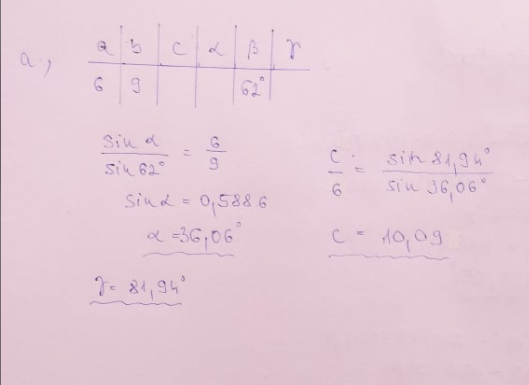 a,
a | b | c | α | β | γ
6 | 9 | | | 62° |
sin α / sin 62° = 6 / 9
sin α = 0,5886
α = 36,06°
γ = 81,94°
c / 6 = sin 81,94° / sin 36,06°
c = 10,09